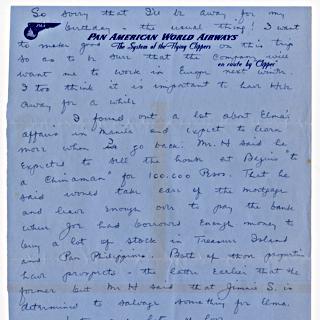 So sorry that I'll be away for my
birthday - the usual thing! I want
PAN AMERICAN WORLD AIRWAYS
The System of the Flying Clippers
to make good on this trip
so as to be sure that the Company will
en route by "Clipper"
want me to work in Europe next winter.
I too think it is important to have
away for a while
I found out a lot about Elma's
affairs in Manila and expect to learn
more when I go back. Mr. H said he
expected to sell the house at Baguio "to
a Chinaman" for 100.000 Pesos. That he
said would take care of the mortgage
and leave enough over to pay the bank
where Joe had borrowed enough money to
buy a lot of stock in Treasure Island
and Pan Philippine. Both of these properties
have prospects - the latter earlier than the
former but Mr H said that S. is
determined to salvage something for Elma.